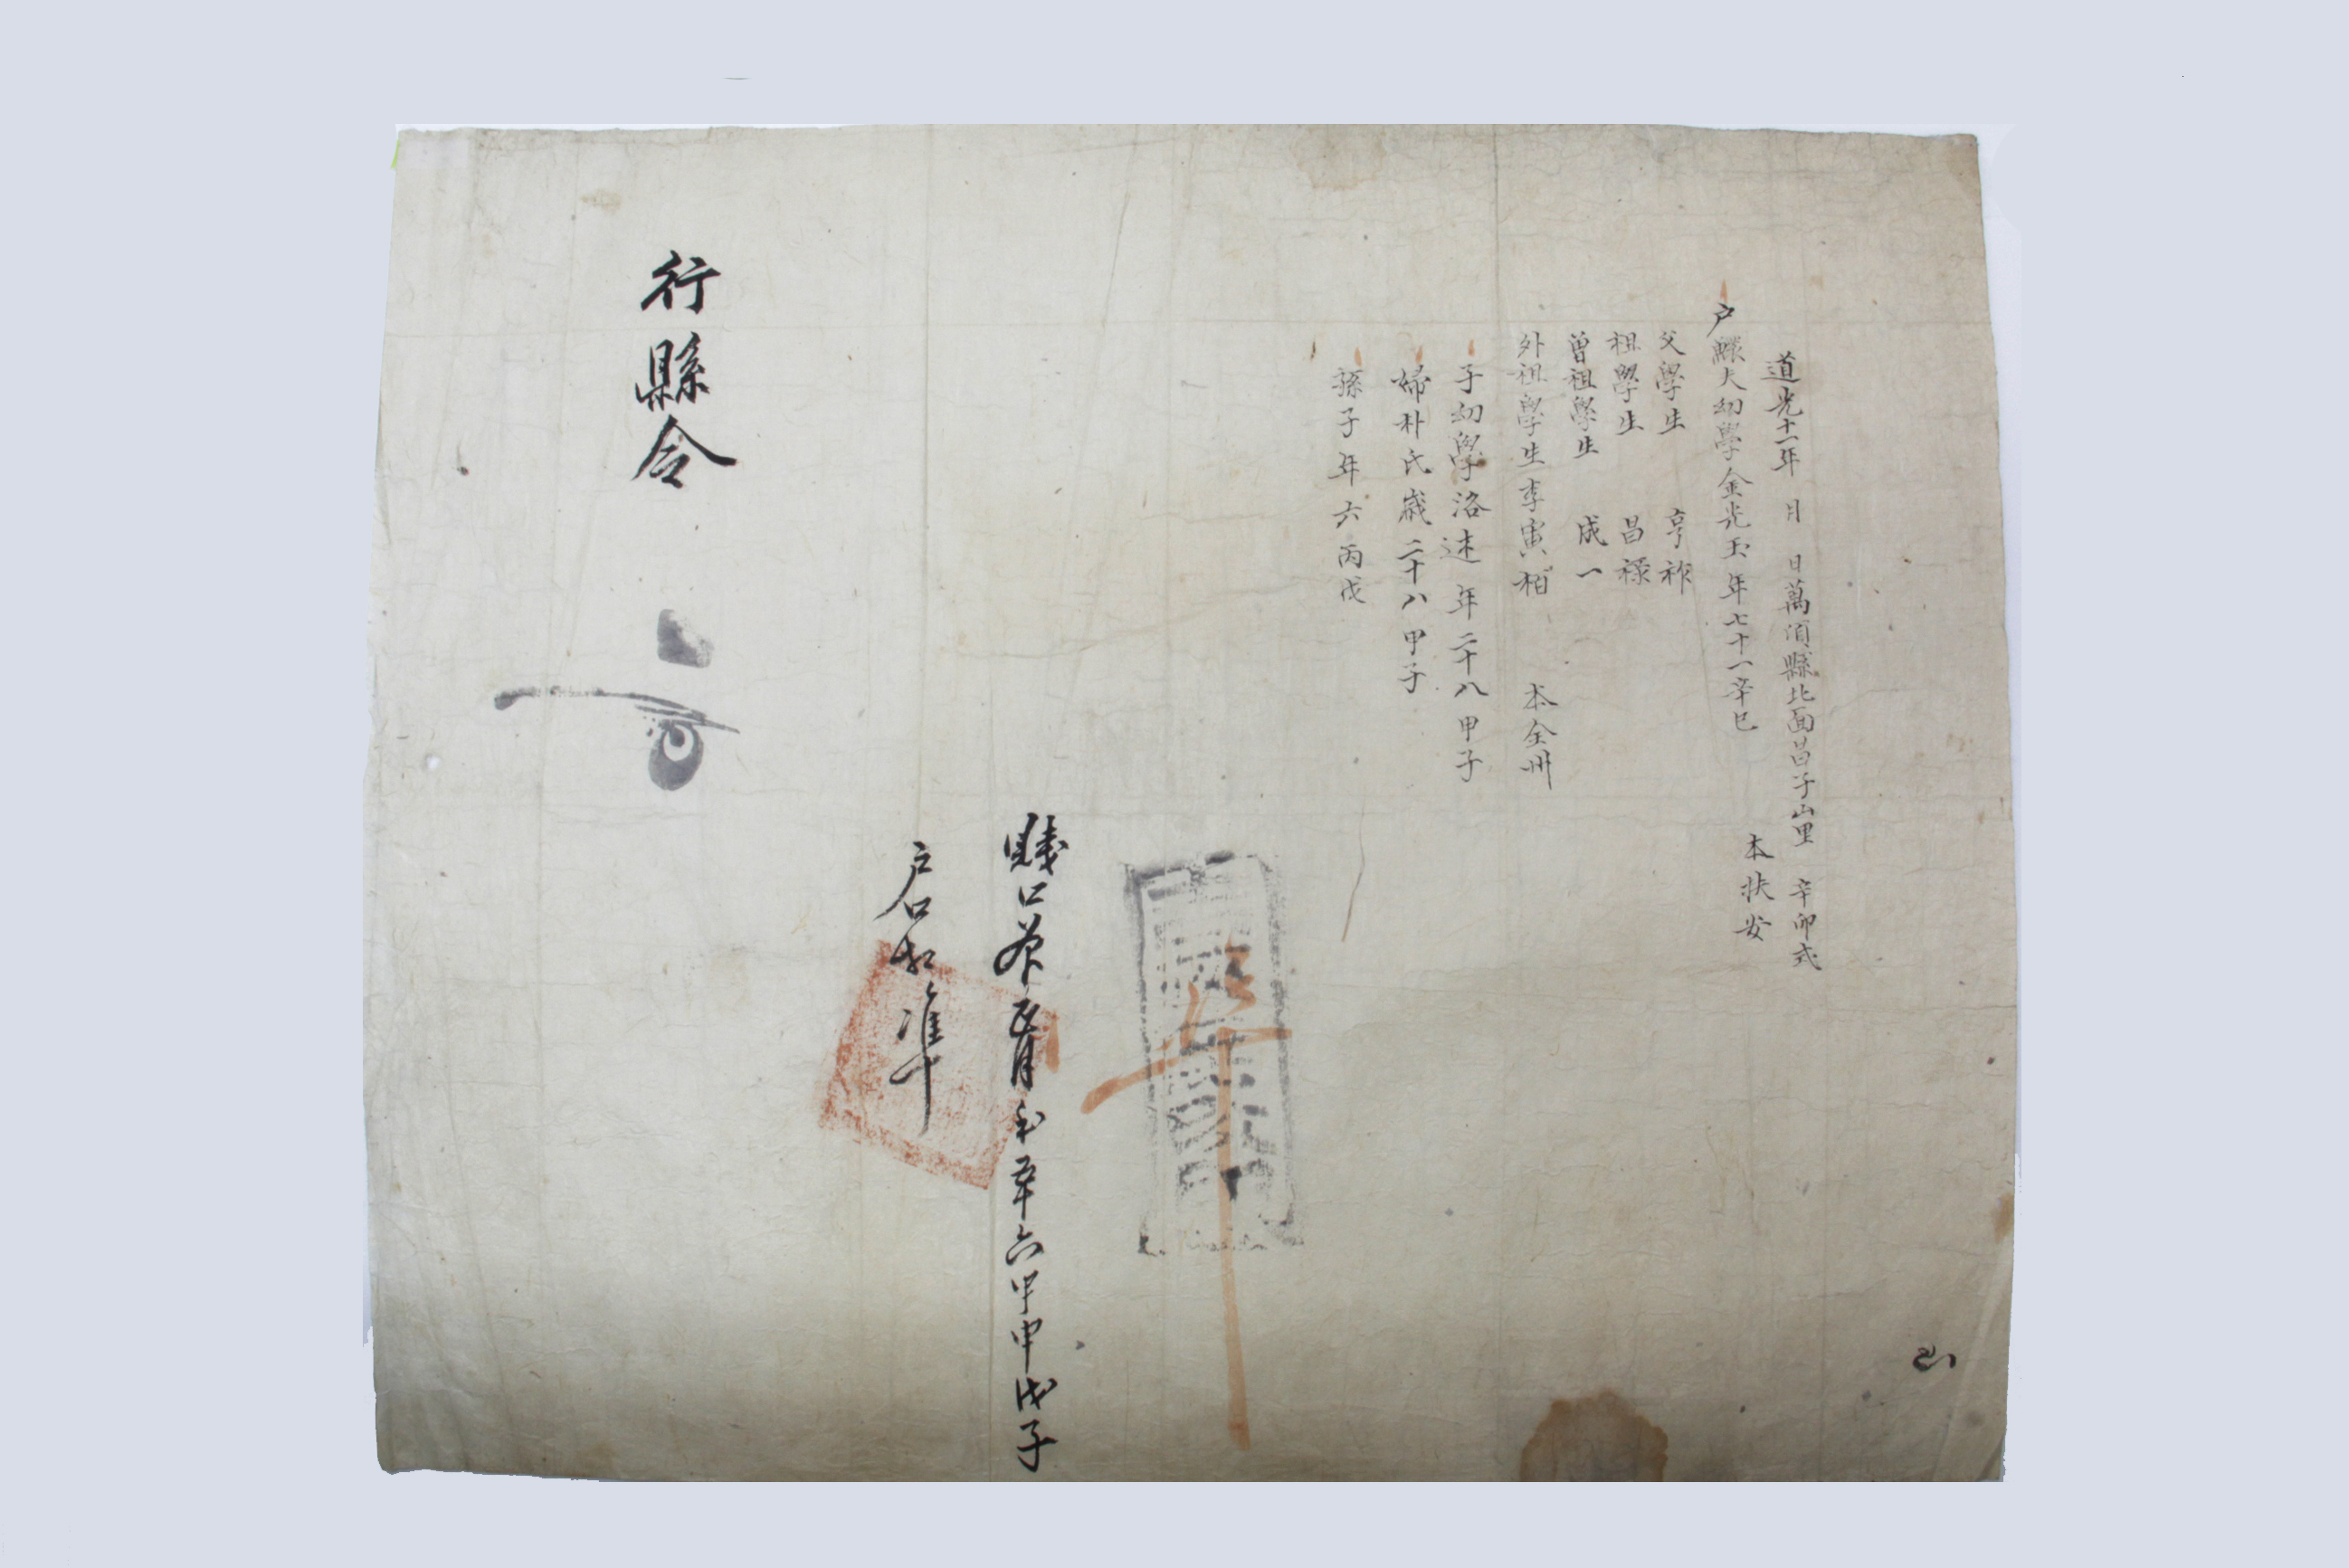 道光十一年 月 日萬頃縣北面昌子山里 辛卯式
戶鰥夫幼學金光玉年七十一辛巳 本扶安
父學生 亨祚
祖學生 昌祿
曾祖學生 成一
外祖學生李寅栢 本全州
子幼學洛 年二十八甲子
婦朴氏歲二十八甲子
孫子年六丙戌
賤口 年六甲申戊子
戶口相準
行縣令